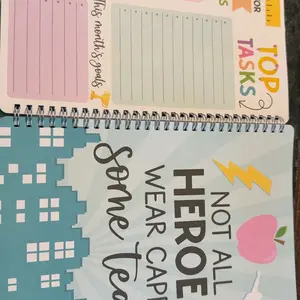 This month's goals
FOR
TOP
TASKS
NOT ALL
HEROE
WEAR CAP
some tea